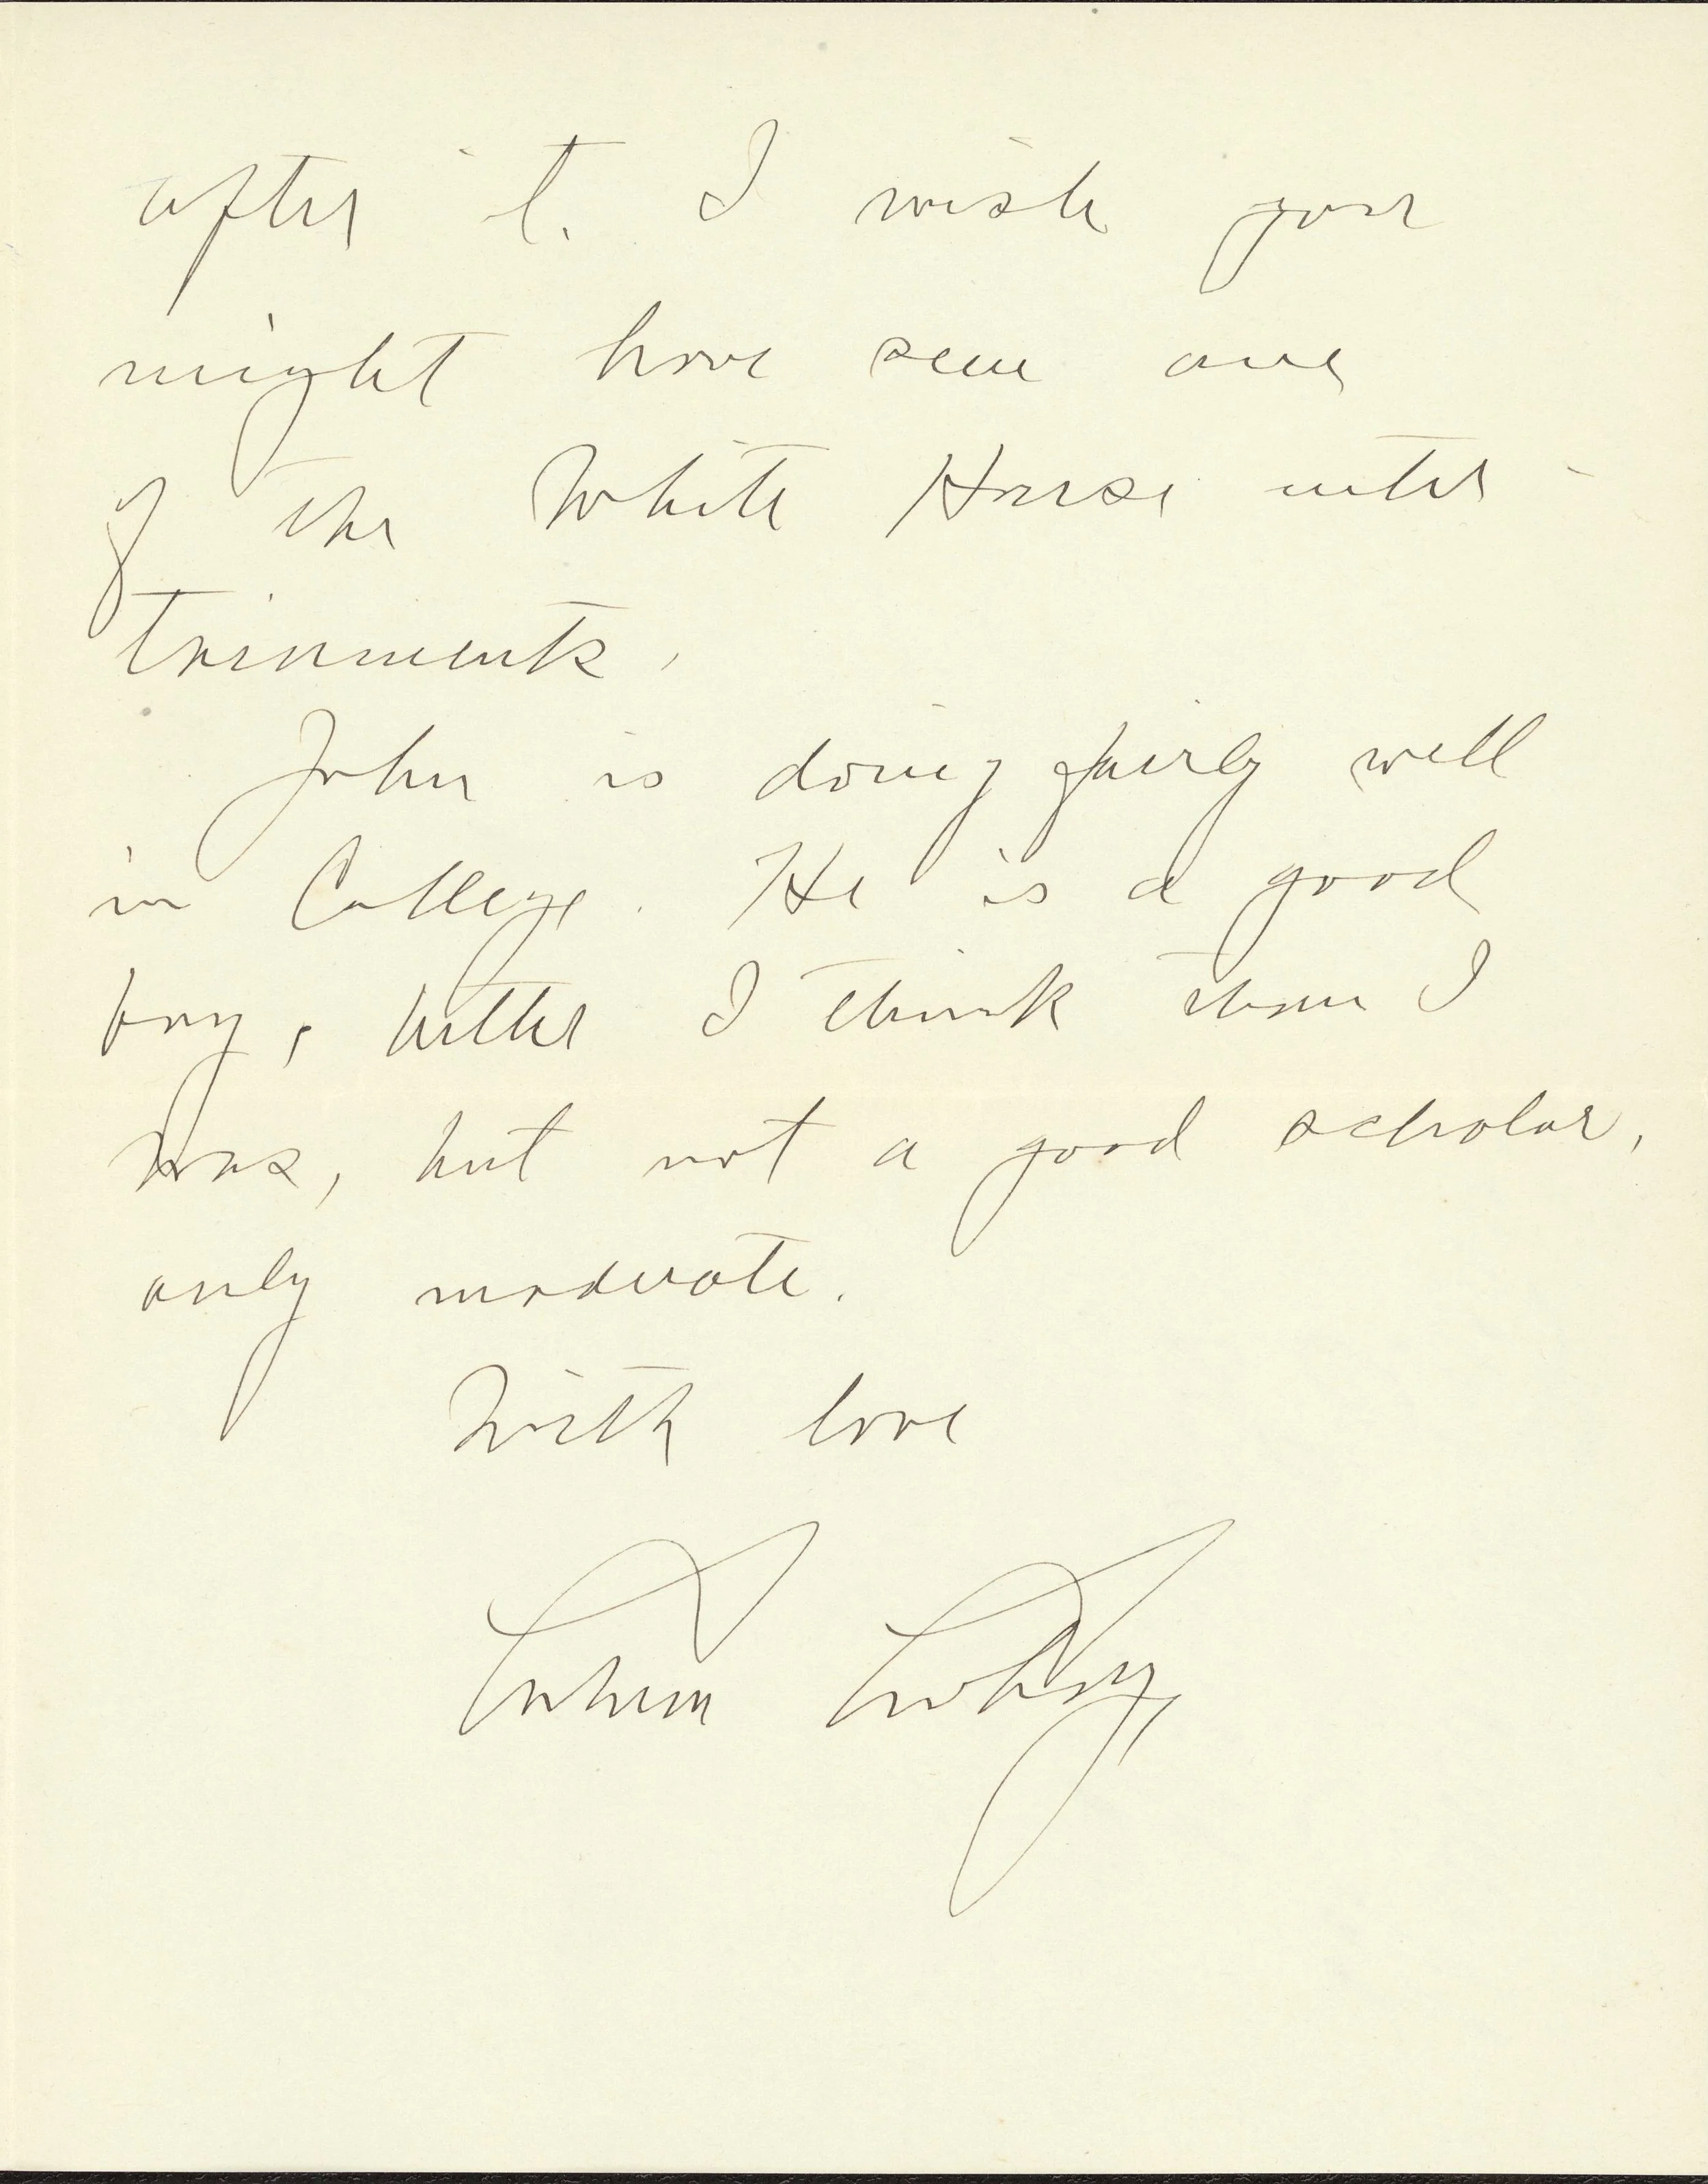 after it. I wish you
might have seen one
of the White House enter-
tainments.
John is doing fairly well
in College. He is a good
boy, better I think than I
was, but not a good scholar,
only moderate.
With love
Calvin Coolidge